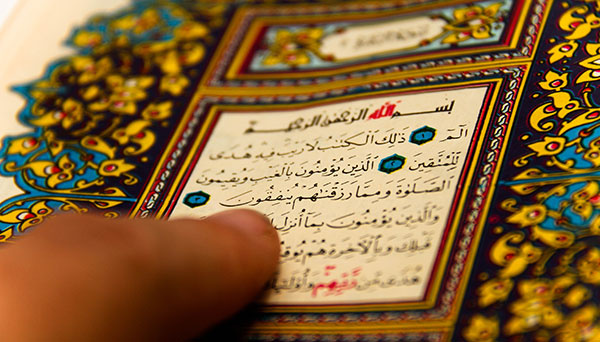 بِسْمِ اللّٰهِ الرَّحْمٰنِ الرَّحِيمِ
الٓمٓ ۝١ ذٰلِكَ الْكِتَابُ لَا رَيْبَ فِيهِ هُدًى
لِلْمُتَّقِينَ ۝٢ الَّذِينَ يُؤْمِنُونَ بِالْغَيْبِ وَيُقِيمُونَ
الصَّلٰوةَ وَمِمَّا رَزَقْنَاهُمْ يُنْفِقُونَ ۝٣
وَالَّذِينَ يُؤْمِنُونَ بِمَا أُنْزِلَ
قَبْلِكَ وَبِالْآخِرَةِ هُمْ يُوقِنُونَ
هُدًى مِنْ رَبِّهِمْ وَأُولٰئِكَ